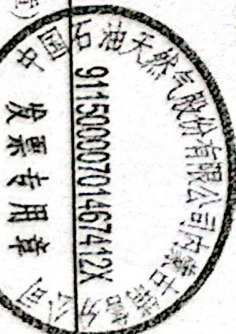 中国石油天然气股份有限公司内蒙古销售分公司
91150000701467412X
发票专用章